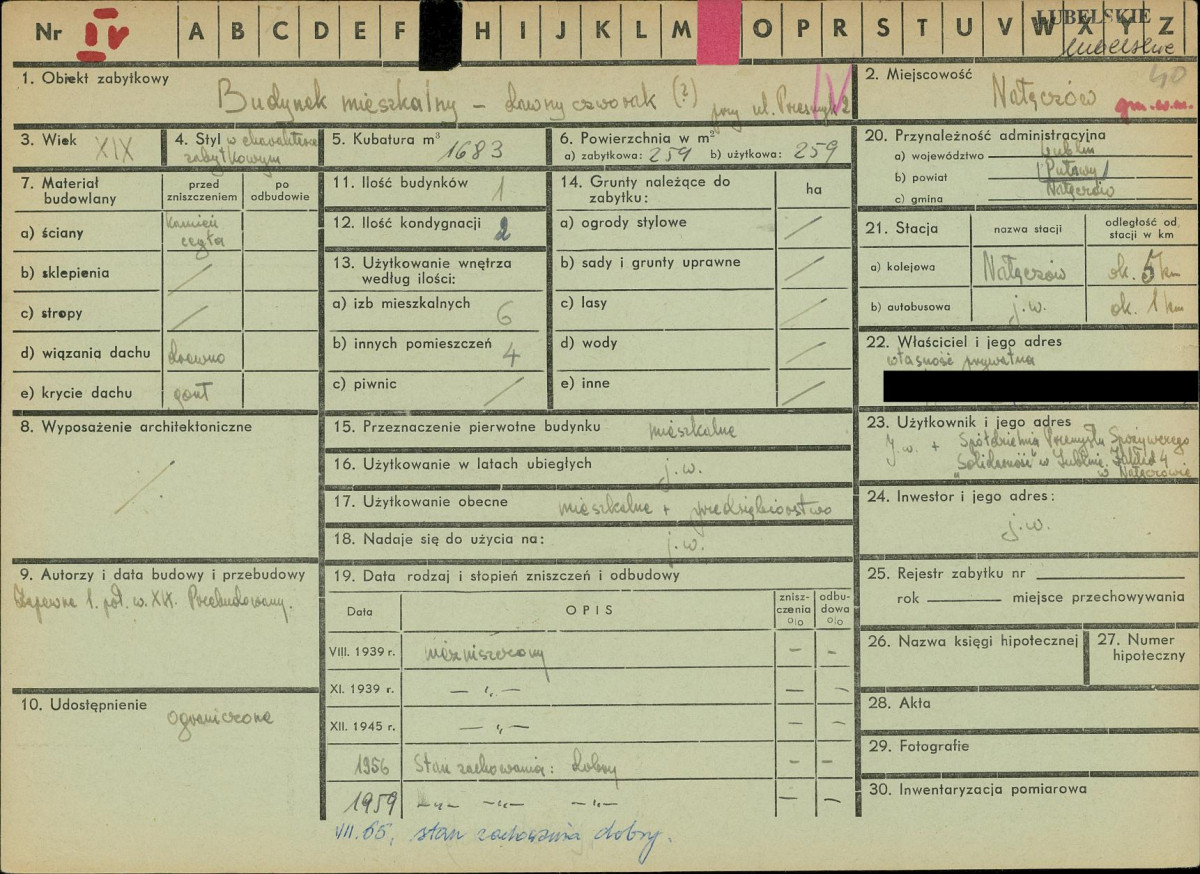 Nr IV A B C D E F H I J K L M O P R S T U V W X Y Z
LUBELSKIE
lubelskie
1. Obiekt zabytkowy
Budynek mieszkalny – dawny czworak (?) przy ul. 2
IV
2. Miejscowość
40
Nałęczów gm.w.m.
3. Wiek XIX
4. Styl w charakterze
zabytkowym
5. Kubatura m³
1683
6. Powierzchnia w m²
a) zabytkowa: 259 b) użytkowa: 259
20. Przynależność administracyjna
a) województwo Lublin
b) powiat Puławy
c) gmina Nałęczów
7. Materiał budowlany
przed zniszczeniem
po odbudowie
a) ściany kamień
cegła
b) sklepienia /
c) stropy /
d) wiązania dachu drewno
e) krycie dachu gont
11. Ilość budynków 1
12. Ilość kondygnacji 2
13. Użytkowanie wnętrza
według ilości:
a) izb mieszkalnych 6
b) innych pomieszczeń 4
c) piwnic /
14. Grunty należące do
zabytku:
ha
a) ogrody stylowe /
b) sady i grunty uprawne /
c) lasy /
d) wody /
e) inne /
21. Stacja
nazwa stacji
odległość od
stacji w km
a) kolejowa Nałęczów ok. 5 km
b) autobusowa j.w. ok. 1 km
22. Właściciel i jego adres
własność prywatna
8. Wyposażenie architektoniczne
/
15. Przeznaczenie pierwotne budynku mieszkalne
16. Użytkowanie w latach ubiegłych j.w.
17. Użytkowanie obecne mieszkalne + przedsiębiorstwo
18. Nadaje się do użycia na: j.w.
23. Użytkownik i jego adres
J.w. + Spółdzielnia Przemysłu Spożywczego
"Solidarność" w Lublinie. Zakład 4
w Nałęczowie
24. Inwestor i jego adres:
j.w.
9. Autorzy i data budowy i przebudowy
Zapewne 1. poł. w. XIX. Przebudowany.
19. Data rodzaj i stopień zniszczeń i odbudowy
Data
OPIS
znisz-
czenia
o/o
odbu-
dowa
o/o
VIII. 1939 r. niezniszczony – –
XI. 1939 r. – „ – – –
XII. 1945 r. – „ – – –
1956 Stan zachowania: dobry – –
1959 –„– –„– –„– – –
VII.65. stan zachowania dobry.
25. Rejestr zabytku nr
rok miejsce przechowywania
26. Nazwa księgi hipotecznej
27. Numer
hipoteczny
10. Udostępnienie
ograniczone
28. Akta
29. Fotografie
30. Inwentaryzacja pomiarowa